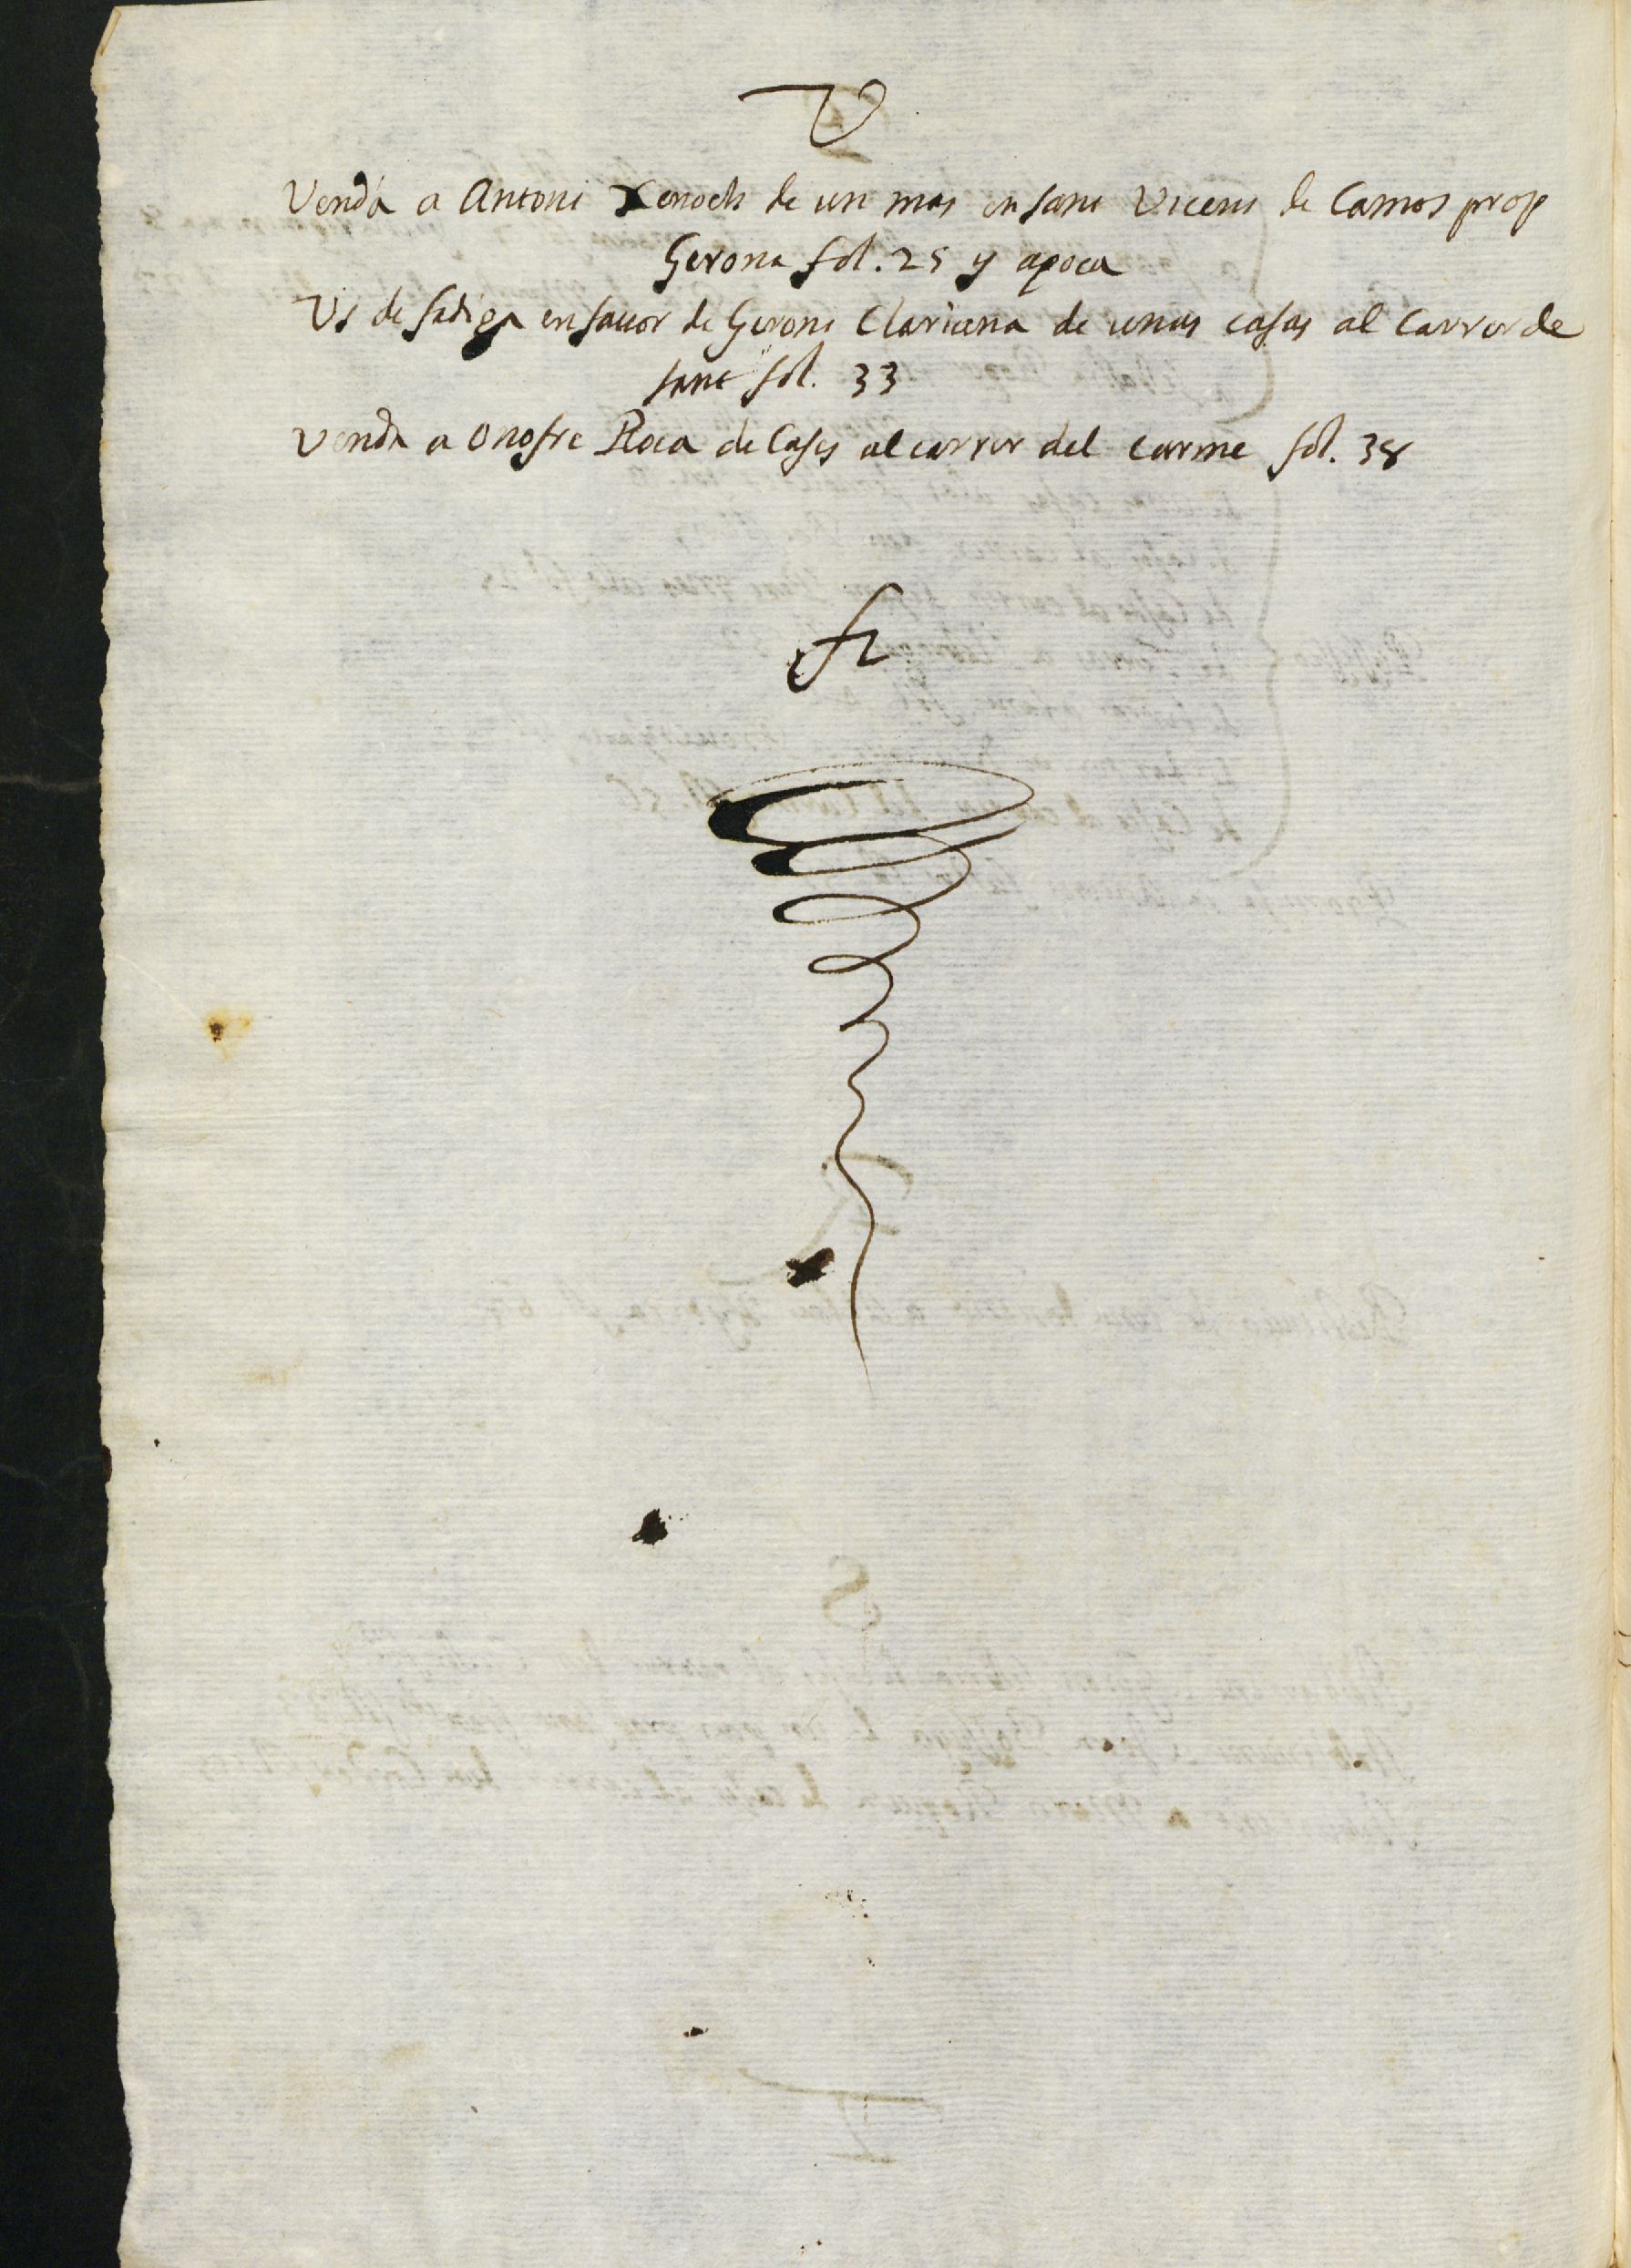 V
Venda a Antoni Xenoch de un mas en sant Vicens de Camos prop
Gerona fol. 25 y apoca
Us de fadiga en favor de Geroni Clariana de unas casas al Carrer de
sant fol. 33
Venda a Onofre Roca de Cases al carrer del Carme fol. 38
fi